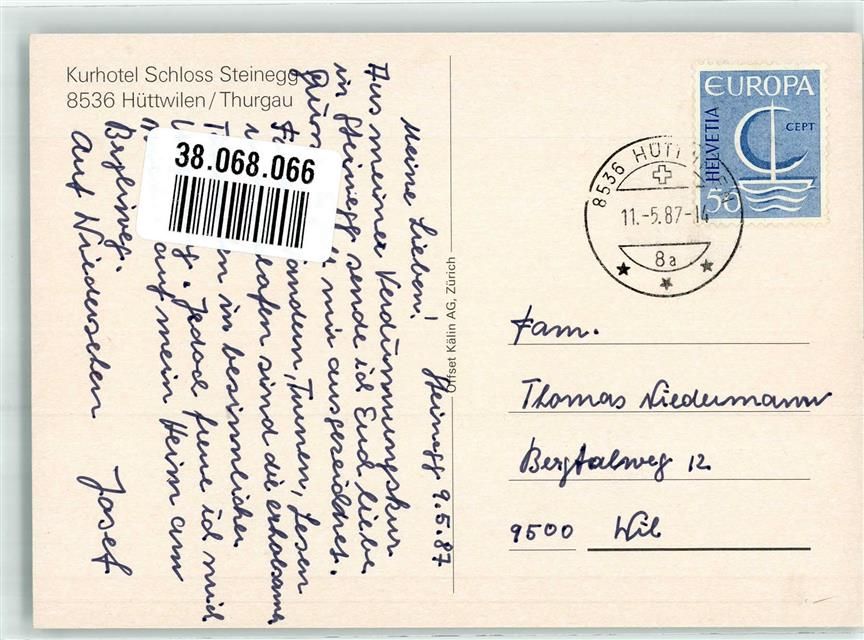 Kurhotel Schloss Steinegg
8536 Hüttwilen/Thurgau
38.068.066
Steinegg 9.5.87
Meine Lieben!
Aus meiner Verdünnungskur
in Steinegg sende ich Euch liebe
mir ausgezeichnet.
wandern, Turnen, Lesen
schlafen sind die erholsame
in besinnlicher
Jedoch freue ich mich
auf mein Heim am
Berglíweg.
Auf Wiedersehen Josef
Offset Kälin AG, Zürich
EUROPA
CEPT
HELVETIA
50
8536 HÜTTWILEN
11.-5.87-14
8a
Fam.
Thomas Niedermann
Bergtalweg 12
9500 Wil